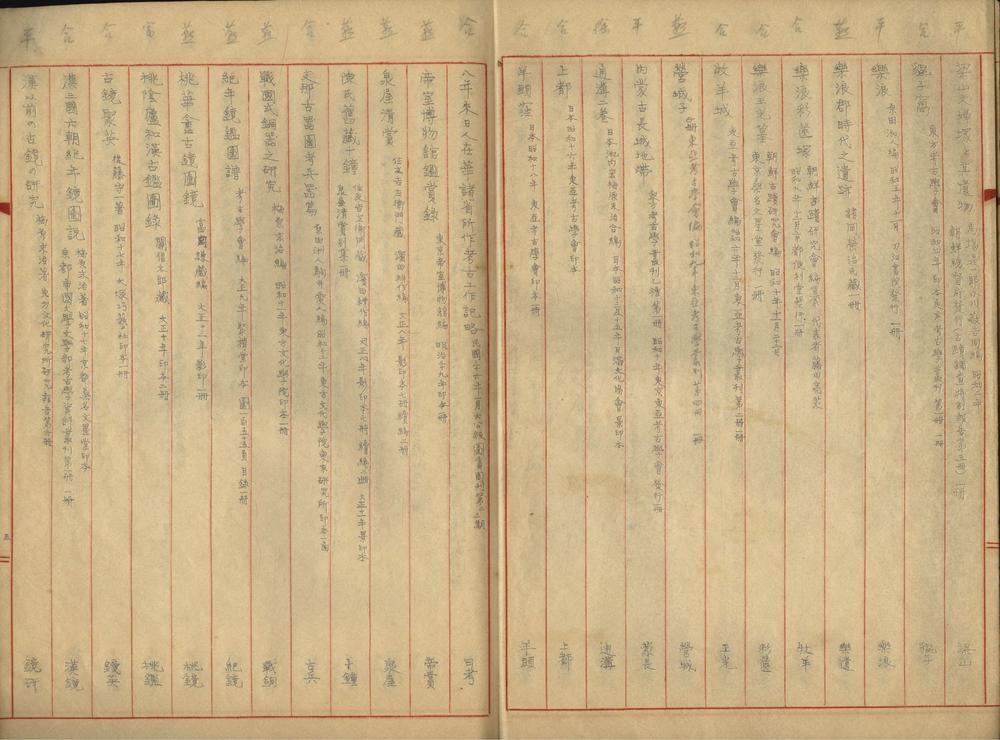 平
梁山夫婦塚ト其遺物
馬場是一郎 小川敬吉同編 昭和二年
朝鮮總督府發行(古蹟調查特別報告第五冊)二冊
梁山
合
貔子窩
東方考古學會 昭和四年印本 東方考古學叢刊第一冊 一冊
貔子
平
樂浪
原田淑人編 昭和五年十一月 刀江書院發行 一冊
樂浪
燕
樂浪郡時代之遺跡
樂遺
合
樂浪彩篋塚
朝鮮古蹟研究會編 代表者藤田亮策
昭和九年十二月京都便利堂發行 一冊
合
樂浪王光墓
朝鮮古蹟研究會編 昭和十年十一月二十三日
東京桑名文星堂發行 一冊
彩篋
合
牧羊城
東亞考古學會編 昭和六年十一月東亞考古學會叢刊第二冊一冊
王光
燕
營城子
東亞考古學會編 昭和九年 東亞考古學叢刊第四冊 一冊
營城
平
內蒙古長城地帶
東方考古學叢刊乙種第一冊 昭和十年東京東亞考古學會發行一冊
蒙長
通溝二卷
日本池內宏梅原末治合編 日本昭和十三至十五年日滿文化協會景印本
通溝
合
上都
日本昭和十六年東亞考古學會印本
上都
合
羊頭窪
日本昭和十八年東亞考古學會印本一冊
羊頭
合
八年來日人在華諸省所作考古工作記略
民國二十六年一月大公報圖書周刊第二期
日考
燕
帝室博物館鑑賞錄
東京帝室博物館編 明治卅九年印本一冊
帝賞
燕
泉屋清賞
住友吉左衛門藏 濱田耕作編 大正八年影印本七冊續編二冊
泉屋
燕
陳氏舊藏十鐘
住友吉左衛門藏 濱田耕作編 大正十一年景印本
泉屋清賞別集一冊
十鐘
合
支那古器圖考兵器篇
原田淑人駒井愛人編 昭和七年東方文化學院東京研究所印本一函
古兵
燕
戰國式銅器之研究
梅原末治編 昭和十一年東方文化學院印本一冊
戰銅
燕
紀年鏡鑑圖譜
考古學會編 大正九年聚精堂印本 圖一百五十五頁目錄一冊
紀鏡
燕
桃華盦古鏡圖
富岡謙藏編 大正十三年影印一冊
桃鏡
富
桃陰廬和漢古鑑圖錄
關信太郎藏 大正十年印本二冊
桃鑑
合
古鏡聚英
後藤守一著 昭和十七年大塚巧藝社印本一冊
鏡英
合
漢三國六朝紀年鏡圖說
梅原末治著 昭和十七年京都桑名文星堂印本
京都帝國大學文學部考古學資料叢刊第一冊 一冊
漢鏡
平
漢以前の古鏡の研究
梅原末治著 東方文化研究所研究報告第六冊
鏡研
五